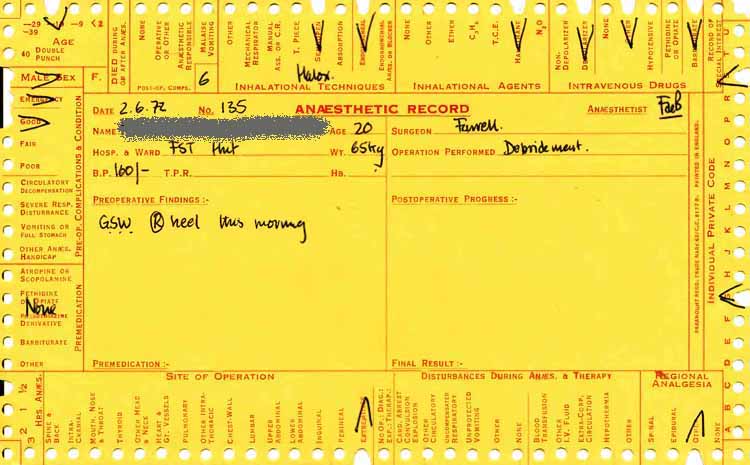 -29 -19 -9 <2
-39
40 DOUBLE PUNCH
AGE
DIED DURING OR AFTER ANÆS.
NONE
OPERATIVE OR OTHER
ANÆSTHETIC RESPONSIBLE
MALAISE VOMITING
OTHER
MECHANICAL RESPIRATOR
MANUAL ASS. OR C.R.
T. PIECE
ABSORPTION
NONE
OTHER
ETHER
C₃H₆
T.C.E.
N₂O
NON-DEPOLARIZER
HYPOTENSIVE
PETHIDINE OR OPIATE
RECORD OF SPECIAL INTEREST
MALE SEX F.
POST-OP. COMPS. 6
Halox.
INHALATIONAL TECHNIQUES
INHALATIONAL AGENTS
INTRAVENOUS DRUGS
EMERGENCY
GOOD
FAIR
POOR
CIRCULATORY DECOMPENSATION
SEVERE RESP. DISTURBANCE
VOMITING OR FULL STOMACH
OTHER ANÆS. HANDICAP
PRE-OP. COMPLICATIONS & CONDITION
ATROPINE OR SCOPOLAMINE
PETHIDINE OR OPIATE
None
DERIVATIVE
BARBITURATE
OTHER
PREMEDICATION
DATE 2.6.72 No. 135 ANÆSTHETIC RECORD ANÆSTHETIST
NAME AGE 20 SURGEON Farrell.
HOSP. & WARD FST Hut WT. 65kg OPERATION PERFORMED Debridement.
B.P. 160/- T.P.R. HB.
PREOPERATIVE FINDINGS :- POSTOPERATIVE PROGRESS :-
GSW (R) heel this morning
PREMEDICATION :- FINAL RESULT :-
PRINTED IN ENGLAND.
INDIVIDUAL PRIVATE CODE
SITE OF OPERATION
DISTURBANCES DURING ANÆS. & THERAPY
REGIONAL ANALGESIA
HRS. ANÆS.
3 2 1 ½
SPINE & BACK
INTRA-CRANIAL
MOUTH, NOSE & THROAT
THYROID
OTHER HEAD & NECK
HEART & GT. VESSELS
PULMONARY
OTHER INTRA-THORACIC
CHEST-WALL
LUMBAR
UPPER ABDOMINAL
LOWER ABDOMINAL
INGUINAL
PERINEAL
CARD. ARREST CONVULSION EXPLOSION
OTHER CIRCULATORY
UNCOMPENSATED RESPIRATORY
UNPROTECTED VOMITING
OTHER
NONE
BLOOD TRANSFUSION
OTHER I.V. FLUID
EXTRA-CORP. CIRCULATION
HYPOTHERMIA
OTHER
SPINAL
EPIDURAL
NONE